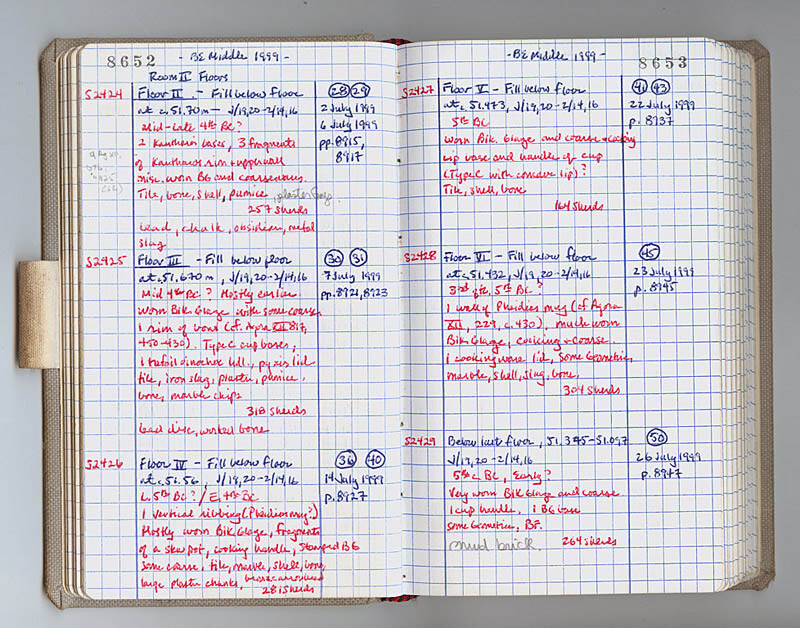 8652
- BE Middle 1999 -
Room II Floors
S2424
Floor II - Fill below Floor
28 29
at c. 51.70m - J/19,20-2/14,16
2 July 1999
Mid-late 4th BC?
6 July 1999
2 Kantharoi bases, 3 fragments
pp. 8915,
of Kantharos rim + upper wall
8917
misc. worn BG and coarsewares.
Tile, bone, shell, pumice, plaster frag.
257 sherds
Lead, chalk, obsidian, metal
slag
S2425
Floor III - Fill below floor
30 31
at c. 51.670m, J/19,20-2/14,16
7 July 1999
Mid 4th BC? Mostly earlier
pp. 8921, 8923
worn Blk Glaze with some coarse
1 rim of bowl (cf. Agora XII 817,
450-430). Type C cup bases,
1 trefoil oinochoe hdl., pyxis lid
tile, iron slag, plaster, pumice,
bone, marble chips
318 sherds
lead disc, worked bone
S2426
Floor IV - Fill below floor
36 40
at c. 51.56, J/19,20-2/14,16
14 July 1999
L. 5th BC? / E. 4th BC
p. 8927
1 vertical ribbing (Pheidias mug?)
Mostly worn Blk Glaze, fragments
of a stew pot, cooking handle, stamped BG
some coarse, tile, marble, shell, bone,
large plaster chunks, bronze arrowhead
281 sherds
- BE Middle 1999 -
8653
S2427
Floor V - Fill below floor
41 43
at c. 51.473, J/19,20-2/14,16
22 July 1999
5th BC
p. 8937
worn Blk. Glaze and coarse + cooking
cup base and handle of cup
(Type C with concave lip)?
Tile, shell, bone
164 sherds
S2428
Floor VI - Fill below floor
45
at c. 51.432, J/19,20-2/14,16
23 July 1999
3rd qtr. 5th BC?
p. 8945
1 wall of Pheidias mug (cf Agora
XII, 229, c. 430), much worn
Blk. Glaze, cooking + coarse.
1 cooking ware lid, some Geometric,
marble, shell, slag, bone.
304 sherds
S2429
Below last floor, 51.345-51.097
50
J/19,20-2/14,16
26 July 1999
5th c. BC, Early?
p. 8947
Very worn Blk Glaze and coarse
1 cup handle, 1 BG base
some Geometric, BF.
mud brick.
264 sherds